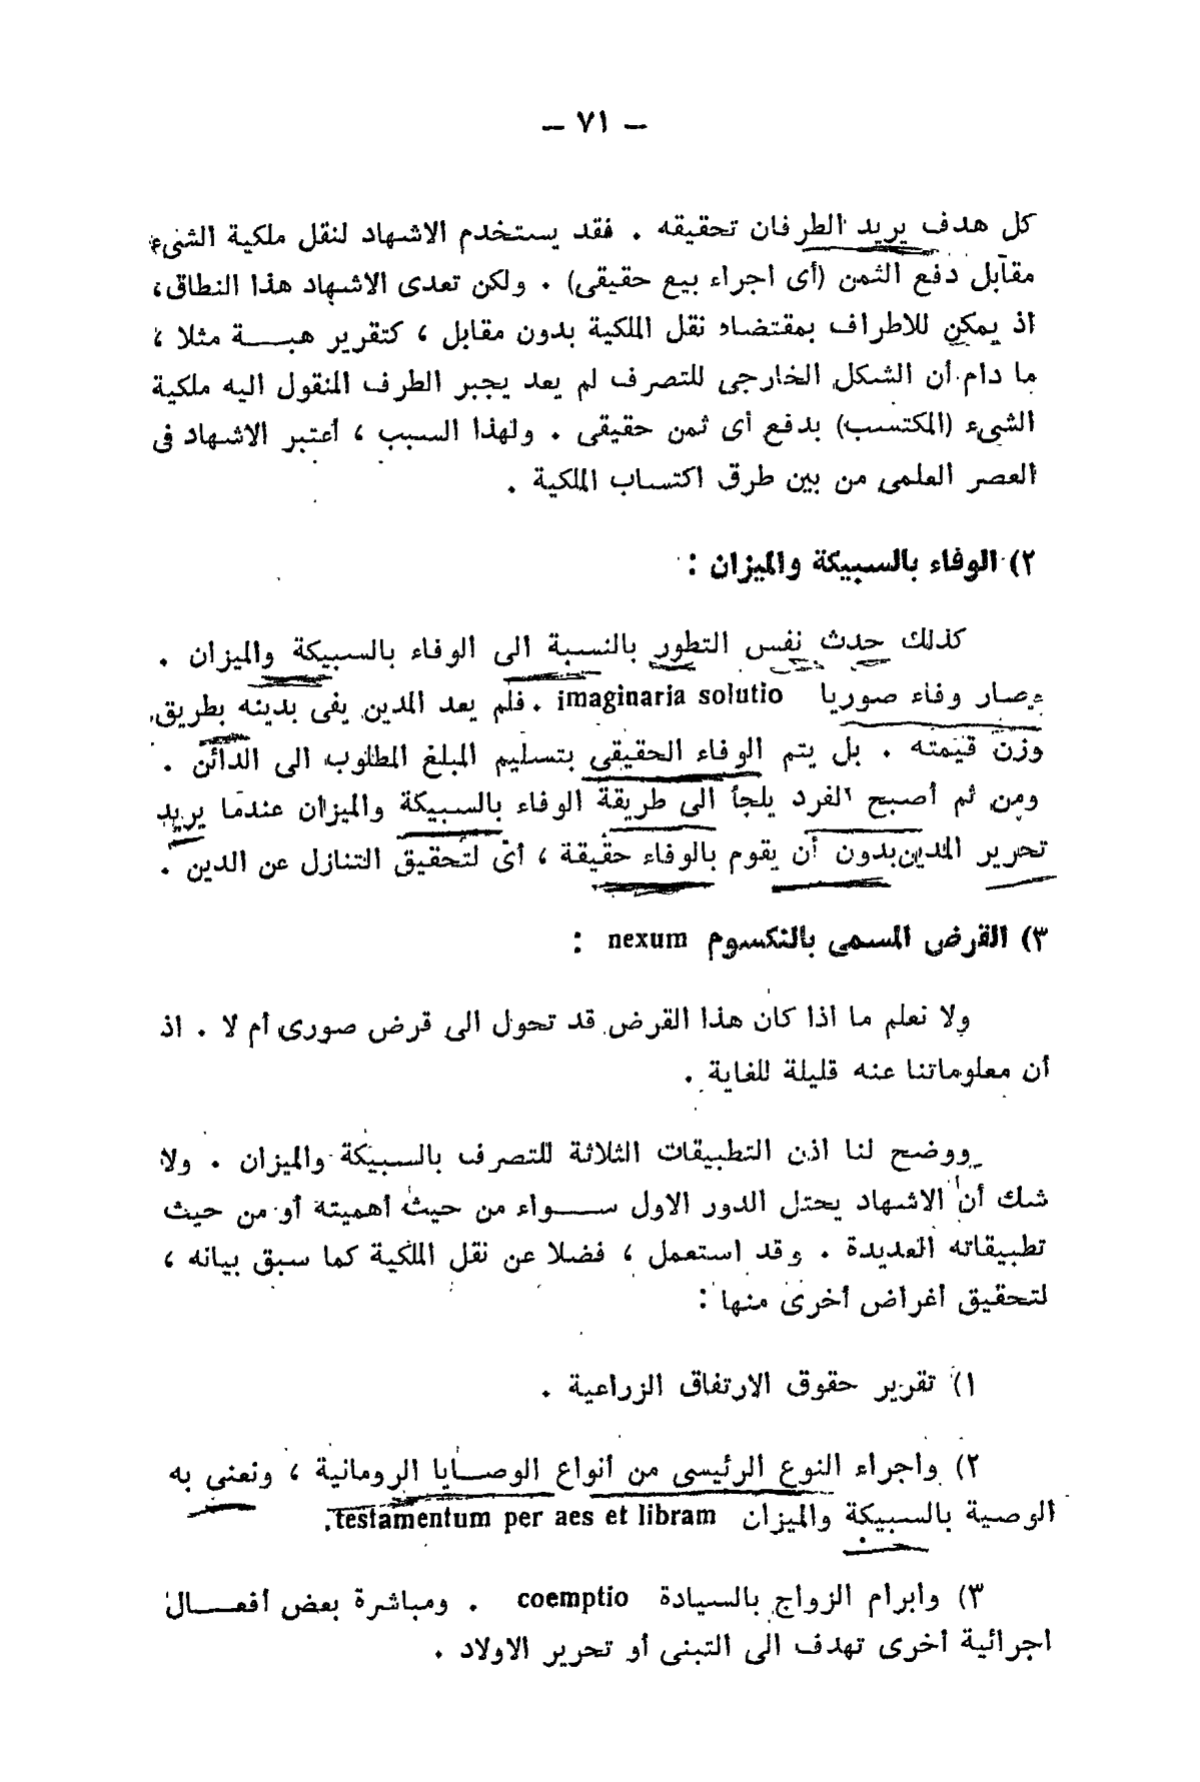 — ٧١ —
كل هدف يريد الطرفان تحقيقه . فقد يستخدم الاشهاد لنقل ملكية الشىء
مقابل دفع الثمن (أى اجراء بيع حقيقى) . ولكن تعدى الاشهاد هذا النطاق،
اذ يمكن للاطراف بمقتضاه نقل الملكية بدون مقابل ، كتقرير هبـــة مثلا ،
ما دام أن الشكل الخارجى للتصرف لم يعد يجبر الطرف المنقول اليه ملكية
الشىء (المكتسب) بدفع أى ثمن حقيقى . ولهذا السبب ، أعتبر الاشهاد فى
العصر العلمى من بين طرق اكتساب الملكية .
٢) الوفاء بالسبيكة والميزان :
كذلك حدث نفس التطور بالنسبة الى الوفاء بالسبيكة والميزان .
وصار وفاء صوريا imaginaria solutio . فلم يعد المدين يفى بدينه بطريق
وزن قيمته . بل يتم الوفاء الحقيقى بتسليم المبلغ المطلوب الى الدائن .
ومن ثم أصبح الفرد يلجأ الى طريقة الوفاء بالسبيكة والميزان عندما يريد
تحرير المدين بدون أن يقوم بالوفاء حقيقة ، أى لتحقيق التنازل عن الدين .
٣) القرض المسمى بالنكسوم nexum :
ولا نعلم ما اذا كان هذا القرض قد تحول الى قرض صورى أم لا . اذ
أن معلوماتنا عنه قليلة للغاية .
ووضح لنا اذن التطبيقات الثلاثة للتصرف بالسبيكة والميزان . ولا
شك أن الاشهاد يحتل الدور الاول ســـواء من حيث أهميته أو من حيث
تطبيقاته العديدة . وقد استعمل ، فضلا عن نقل الملكية كما سبق بيانه ،
لتحقيق أغراض أخرى منها :
١) تقرير حقوق الارتفاق الزراعية .
٢) واجراء النوع الرئيسى من أنواع الوصــايا الرومانية ، ونعنى به
الوصية بالسبيكة والميزان testamentum per aes et libram.
٣) وابرام الزواج بالسيادة coemptio . ومباشرة بعض أفعــال
اجرائية أخرى تهدف الى التبنى أو تحرير الاولاد .